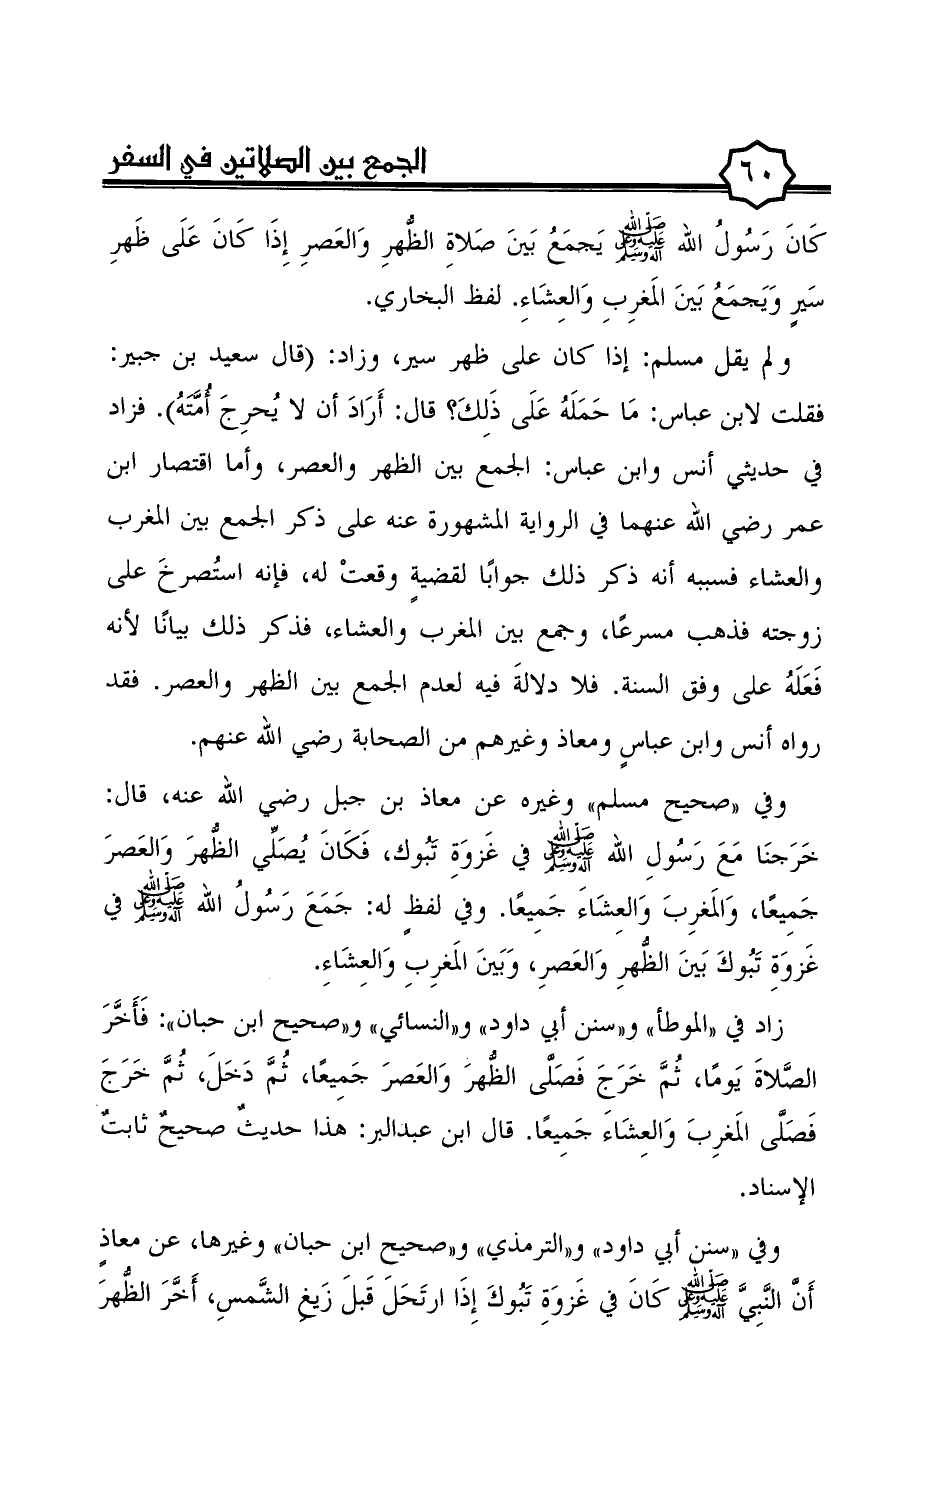 ٦٠ الجمع بين الصلاتين في السفر
كَانَ رَسُولُ الله ﷺ يَجمَعُ بَينَ صَلاةِ الظُّهرِ وَالعَصرِ إِذَا كَانَ عَلَى ظَهرِ
سَيرٍ وَيَجمَعُ بَينَ المَغرِبِ وَالعِشَاءِ. لفظ البخاري.
ولم يقل مسلم: إذا كان على ظهر سير، وزاد: (قال سعيد بن جبير:
فقلت لابن عباس: مَا حَمَلَهُ عَلَى ذَلِكَ؟ قال: أَرَادَ أن لا يُحرِجَ أُمَّتَهُ). فزاد
في حديثي أنس وابن عباس: الجمع بين الظهر والعصر، وأما اقتصار ابن
عمر رضي الله عنهما في الرواية المشهورة عنه على ذكر الجمع بين المغرب
والعشاء فسببه أنه ذكر ذلك جوابًا لقضيةٍ وقعتْ له، فإنه استُصرخَ على
زوجته فذهب مسرعًا، وجمع بين المغرب والعشاء، فذكر ذلك بيانًا لأنه
فَعَلَهُ على وفق السنة. فلا دلالةَ فيه لعدم الجمع بين الظهر والعصر. فقد
رواه أنس وابن عباسٍ ومعاذ وغيرهم من الصحابة رضي الله عنهم.
وفي «صحيح مسلم» وغيره عن معاذ بن جبل رضي الله عنه، قال:
خَرَجنَا مَعَ رَسُولِ الله ﷺ في غَزوَةِ تَبُوك، فَكَانَ يُصَلِّي الظُّهرَ وَالعَصرَ
جَمِيعًا، وَالمَغرِبَ وَالعِشَاءَ جَمِيعًا. وفي لفظٍ له: جَمَعَ رَسُولُ الله ﷺ في
غَزوَةِ تَبُوكَ بَينَ الظُّهرِ وَالعَصرِ، وَبَينَ المَغرِبِ وَالعِشَاءِ.
زاد في «الموطأ» و«سنن أبي داود» و«النسائي» و«صحيح ابن حبان»: فَأَخَّرَ
الصَّلاةَ يَومًا، ثُمَّ خَرَجَ فَصَلَّى الظُّهرَ وَالعَصرَ جَمِيعًا، ثُمَّ دَخَلَ، ثُمَّ خَرَجَ
فَصَلَّى المَغرِبَ وَالعِشَاءَ جَمِيعًا. قال ابن عبدالبر: هذا حديثٌ صحيحٌ ثابتٌ
الإسناد.
وفي «سنن أبي داود» و«الترمذي» و«صحيح ابن حبان» وغيرها، عن معاذٍ
أَنَّ النَّبِيَّ ﷺ كَانَ في غَزوَةِ تَبُوكَ إِذَا ارتَحَلَ قَبلَ زَيغِ الشَّمسِ، أَخَّرَ الظُّهرَ